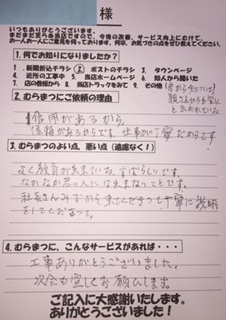 様
いつもありがとうございます。
まだまだ至らぬ当店ですので、今後の改善、サービス向上にむけて、
お一人お一人にご意見を伺っております。何卒、お気づきの点をぜひ教えてください。
1. 何でお知りになりましたか？
1 新聞折込チラシ ② ポストのチラシ 3. タウンページ
4. 近所の工事中 5 当店ホームページ 6. 知人から聞いた
7. 店の看板から 8 当店トラックをみて 9. その他
2. むらまつにご依頼の理由
信用があるから。
信頼があるからです。仕事が丁寧だからです
3. むらまつのよい点、悪い点（遠慮なく！）
よく教育が出来ていて、すばらしいです。
なかなか若い人には出来ないことです。
丁寧に説明
をしてくださって。
4. むらまつに、こんなサービスがあれば・・・
工事ありがとうございました。
次回も宜しくお願いします。
ご記入に大感謝いたします。
ありがとうございました！